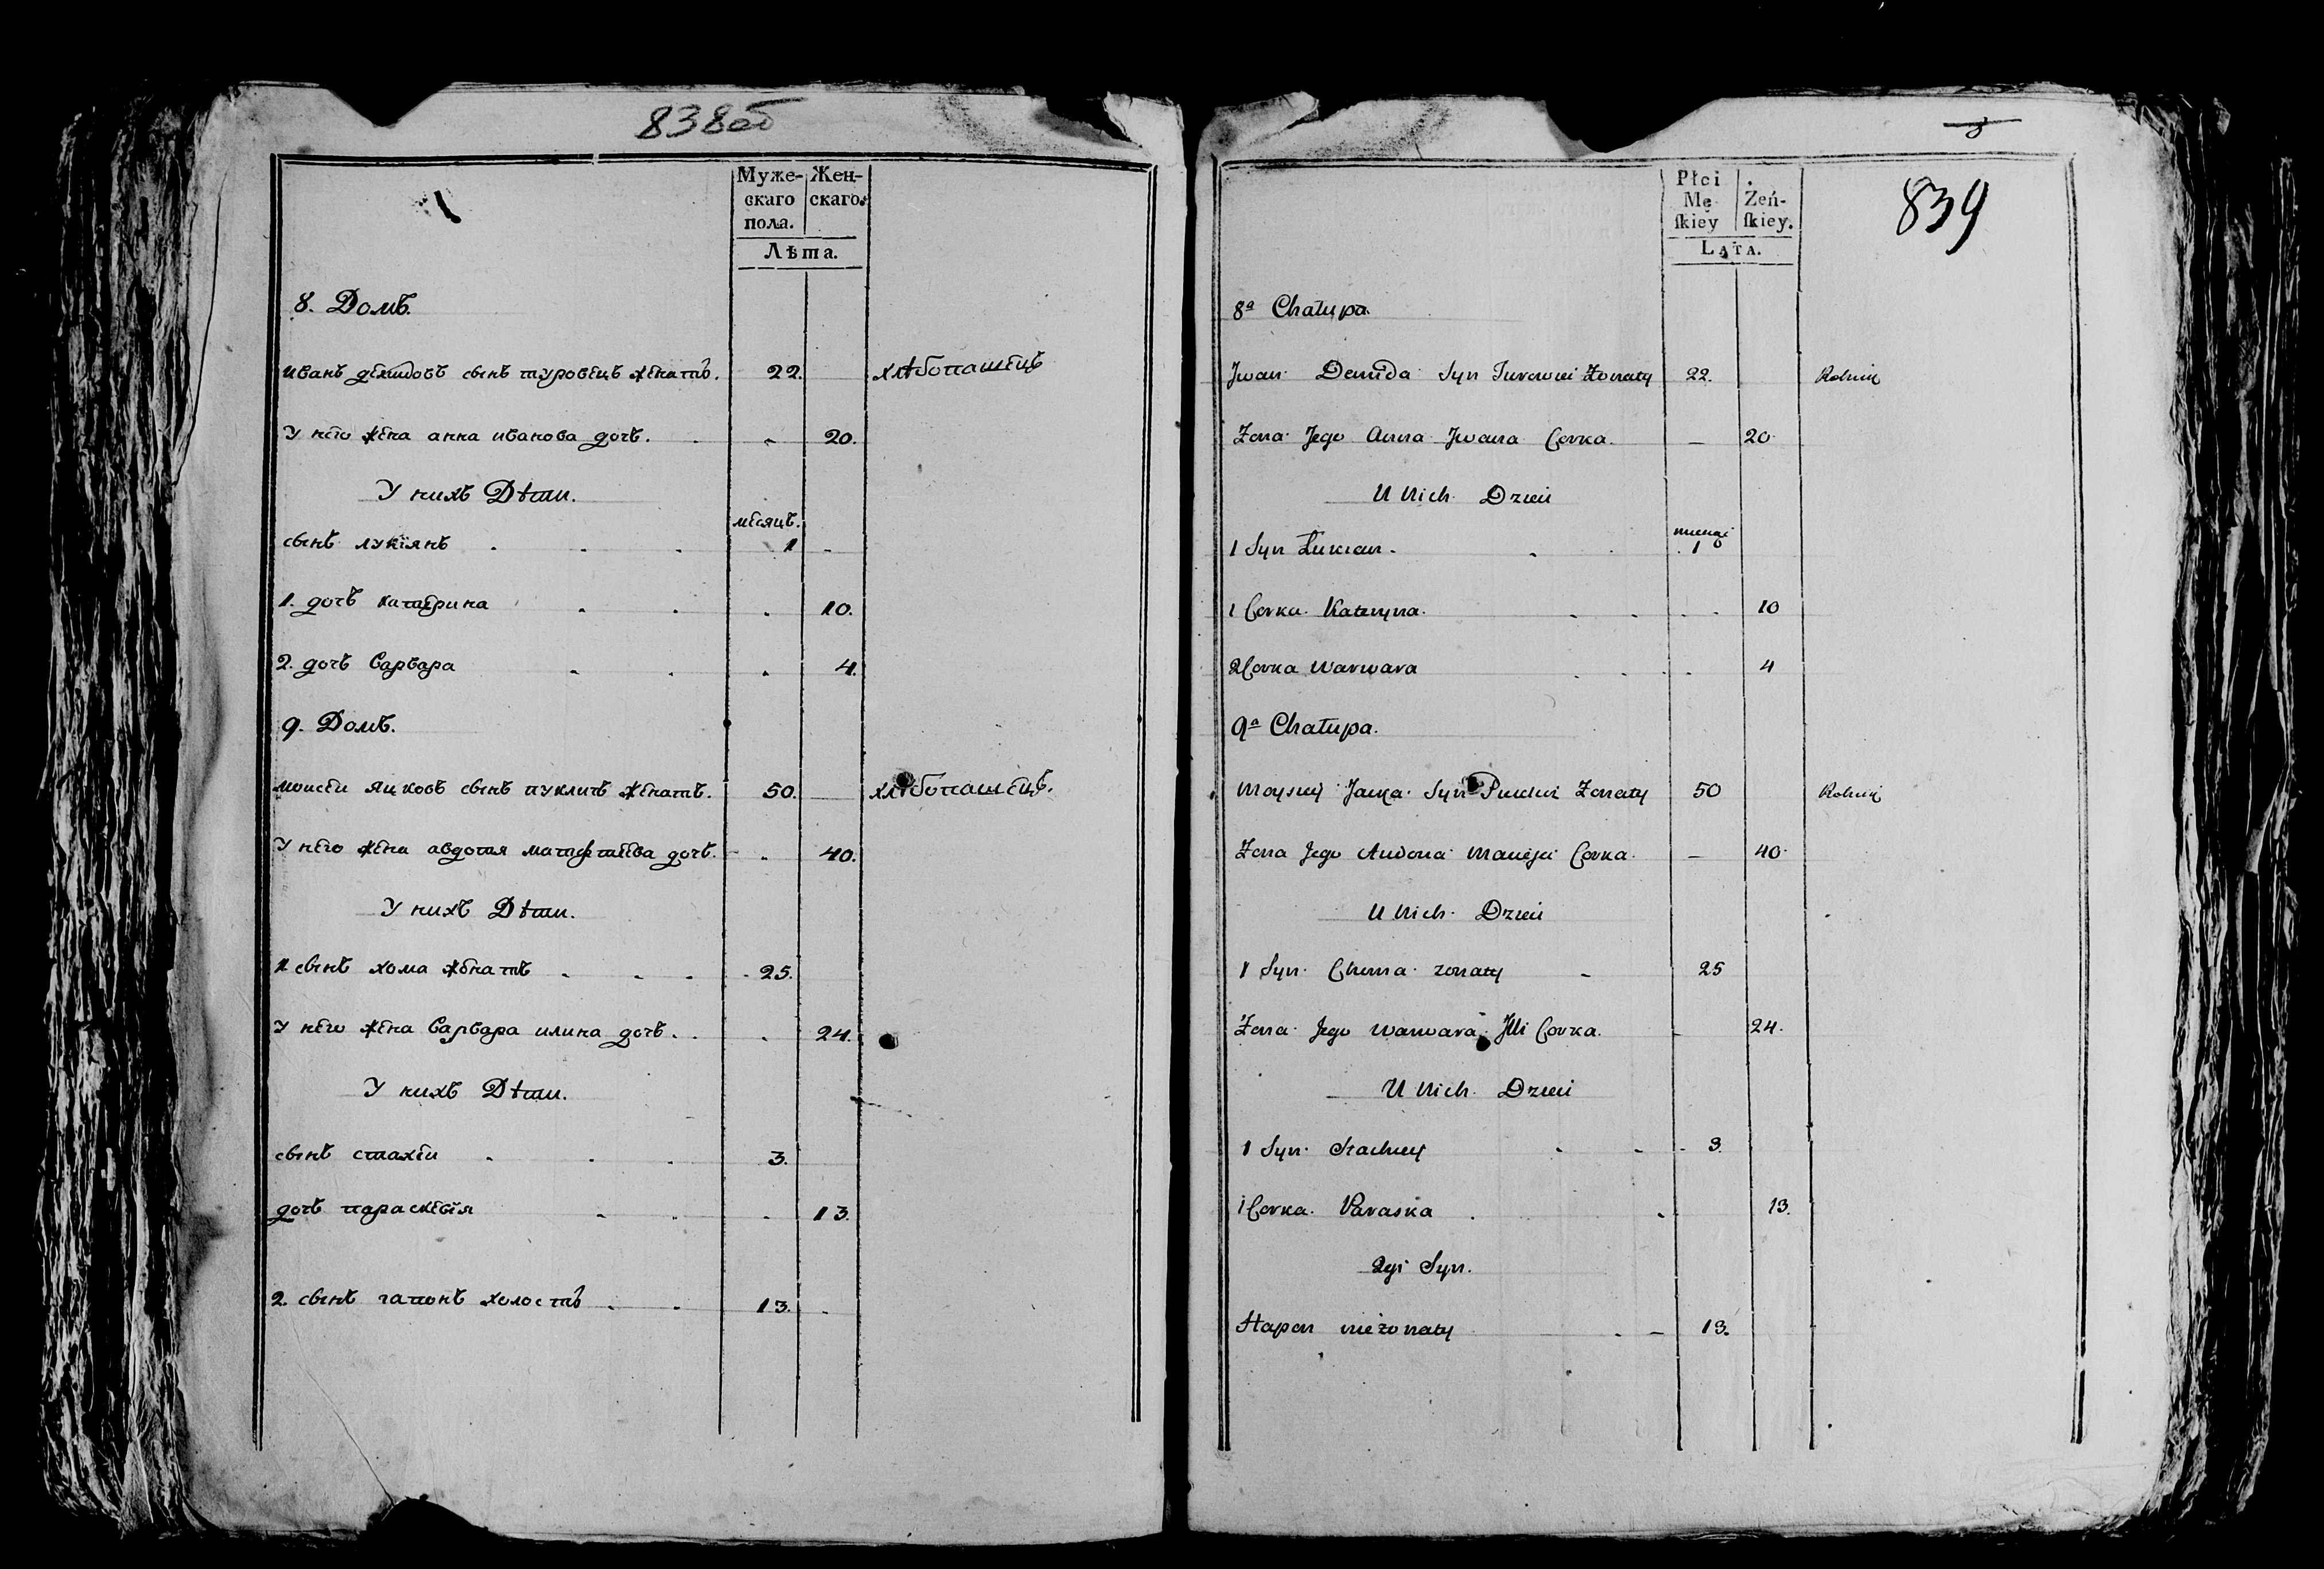 838об
Муже- Жен-
скаго скаго.
пола.
Лѣта.
8. Домъ.
иванъ демидовъ сынъ туровецъ женатъ. 22. хлѣбопашецъ
У него жена анна иванова дочь. 20.
У нихъ Дѣти.
месяцъ.
сынъ лукіянъ 1
1. дочь катерина 10.
2. дочь варвара 4.
9. Домъ.
моисей яцковъ сынъ пукличъ женатъ. 50. хлѣбопашецъ.
У него жена авдотя матфтеева дочь. 40.
У нихъ Дѣти.
1 сынъ хома женатъ 25.
У него жена варвара илина дочь. 24.
У нихъ Дѣти.
сынъ стахей 3.
дочь параскевія 13.
2. сынъ гапонъ холостъ 13.
839
Płci
Mę- Żeń-
ſkiey ſkiey.
LATA.
8a Chałupa.
Jwan Demida Syn Żonaty 22. Rolnik
Żona Jego Anna Jwana Corka 20
U Nich Dzieci
1 Syn Łukian 1
1 Corka Katerzyna 10
2 Corka Warwara 4
9a Chałupa.
Moysiey Jacka Syn Żonaty 50 Rolnik
Żona Jego Corka 40
U Nich Dzieci
1 Syn Choma żonaty 25
Żona Jego Warwara Jlli Corka. 24.
U Nich Dzieci
1 Syn Stachiey 3
1 Corka Paraska 13.
2gi Syn.
Hapon nieżonaty 13.